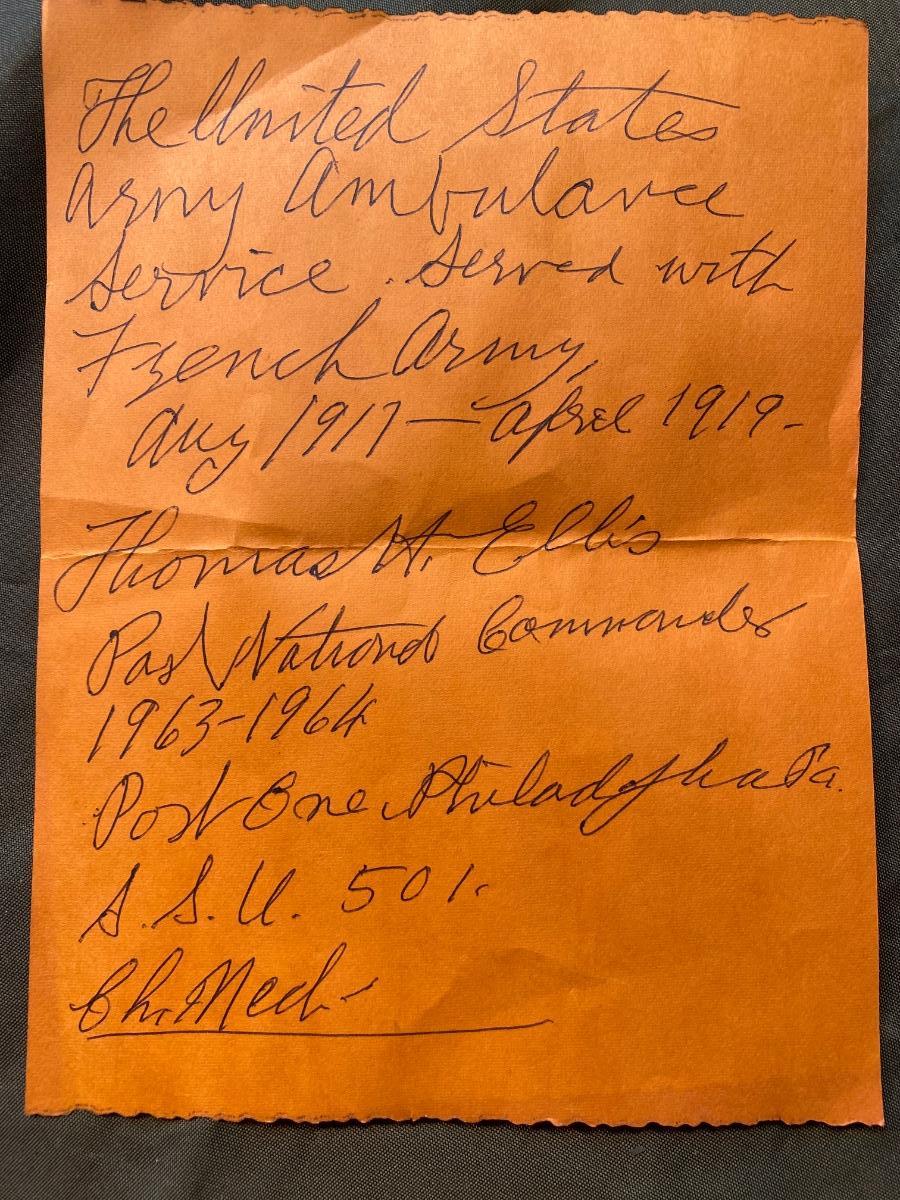 The United States
Army Ambulance
Service. Served with
French Army,
Aug 1917 — April 1919 -
Thomas H. Ellis
Past National Commander
1963-1964
Post One Philadelphia Pa.
S.S.U. 501.
Ch. Mech.